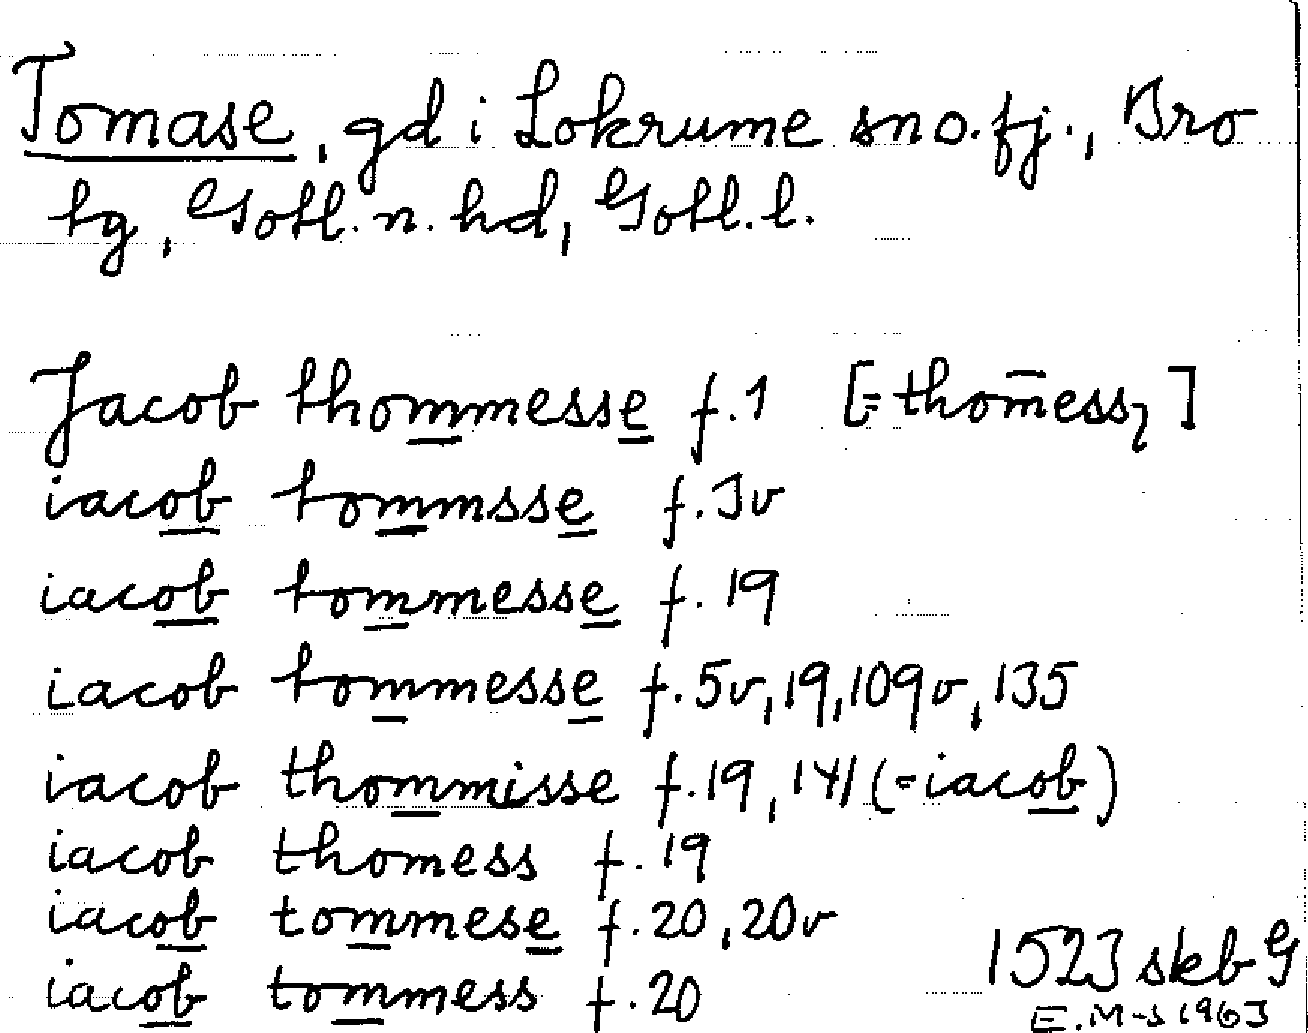 Tomase, gd i Lokrume sn o. fj., Bro
tg, Gotl. n. hd, Gotl. l.
Jacob thommesse f. 1 [= thom̄essʒ]
iacob tommsse f. 3v
iacob tommesse f. 19
iacob tommesse f. 5v, 19, 109v, 135
iacob thommisse f. 19, 141 (= iacob)
iacob thomess f. 19
iacob tommese f. 20, 20v
iacob tommess f. 20
1523 skb G
E.M-S 1963